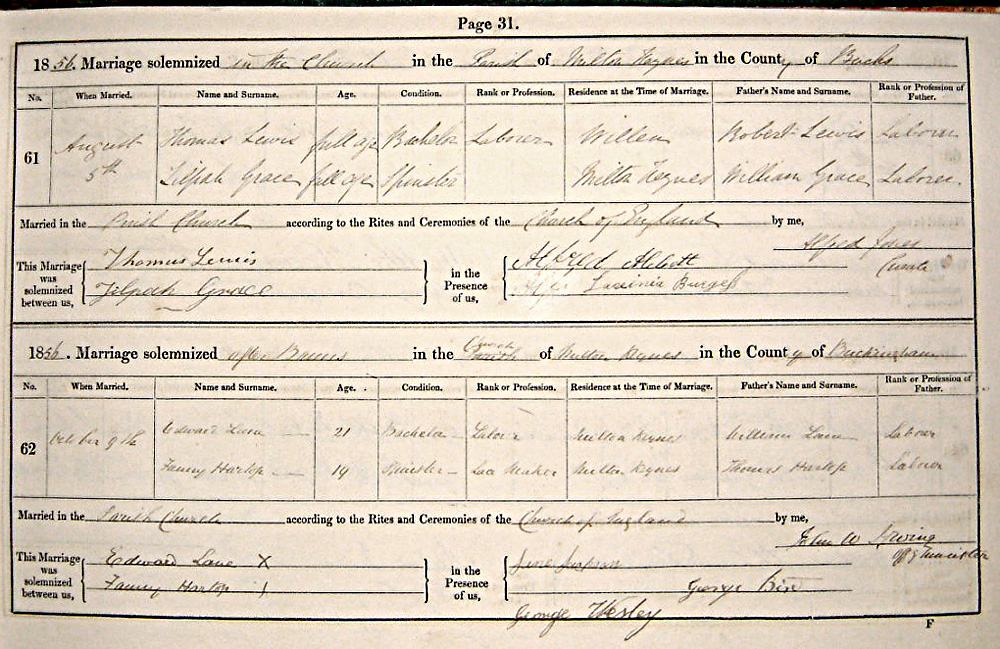 Page 31.
1856. Marriage solemnized in the Church in the Parish of Milton Keynes in the County of Bucks
No. When Married. Name and Surname. Age. Condition. Rank or Profession. Residence at the Time of Marriage. Father's Name and Surname. Rank or Profession of Father.
61 August 5th Thomas Lewis full age Bachelor Laborer Willen Robert Lewis Laborer
Zilpah Grace full age Spinster Milton Keynes William Grace Laborer.
Married in the Parish Church according to the Rites and Ceremonies of the Church of England by me,
Alfred
This Marriage was solemnized between us, Thomas Lewis in the Presence of us, Alfred Abbott
Zilpah Grace Lavinia Burgess
1856. Marriage solemnized after Banns in the Church Parish of Milton Keynes in the County of Buckingham
No. When Married. Name and Surname. Age. Condition. Rank or Profession. Residence at the Time of Marriage. Father's Name and Surname. Rank or Profession of Father.
62 October 9th Edward Lane 21 Bachelor Labour Milton Keynes William Lane Labour
Fanny Harlop 19 Spinster Lace Maker Milton Keynes Thomas Harlop Labour
Married in the Parish Church according to the Rites and Ceremonies of the Church of England by me,
John W Irving
offg Minister
This Marriage was solemnized between us, Edward Lane X in the Presence of us, Jane
Fanny Harlop George Bird
George Wesley
F